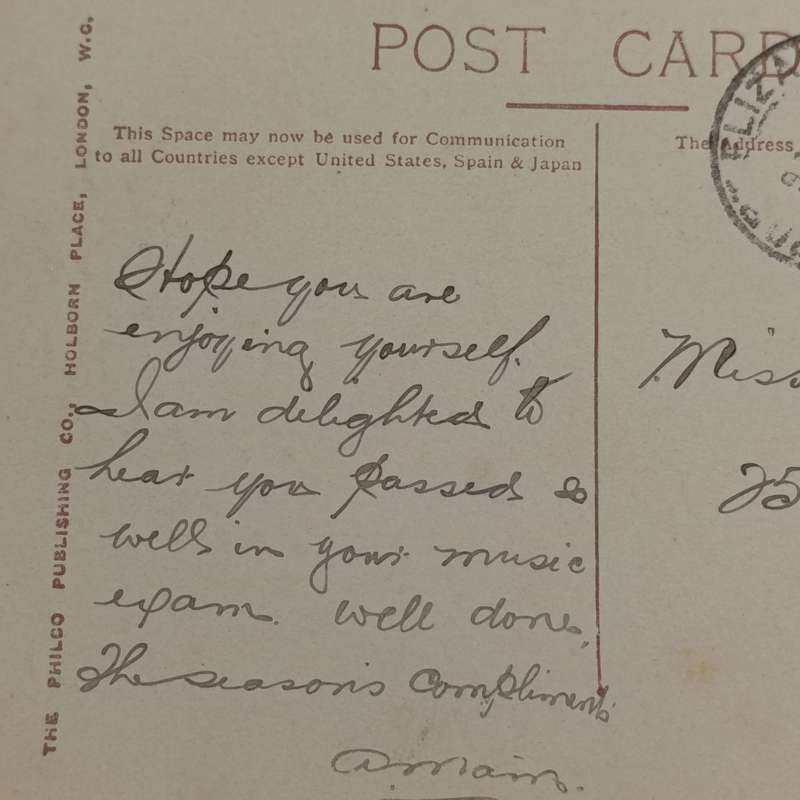 POST CARD
This Space may now be used for Communication
to all Countries except United States, Spain & Japan
The Address
ELIZA
THE PHILCO PUBLISHING CO., HOLBORN PLACE, LONDON, W.C.
Hope you are
enjoying yourself.
I am delighted to
hear you passed so
well in your music
exam. Well done.
The season's compliments
Miss
25